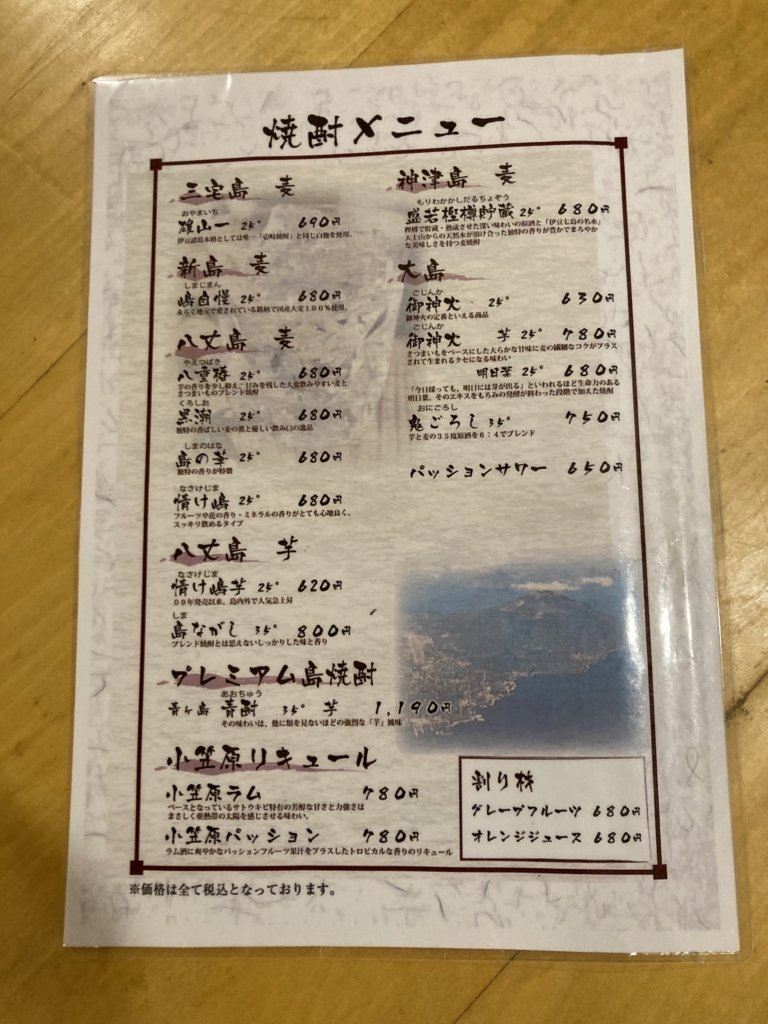 焼酎メニュー
三宅島 麦
おやまいち
雄山一 25° 690円
伊豆諸島本格としては唯一「壱岐焼酎」と同じ白麹を使用。
新島 麦
しまじまん
嶋自慢 25° 680円
永らく地元で愛されている銘柄で国産大麦100%使用。
八丈島 麦
やえつばき
八重椿 25° 680円
芋の香りを少し抑え、甘みを残した大変飲みやすい麦と
さつまいものブレンド焼酎
くろしお
黒潮 25° 680円
独特の香ばしい麦の薫と優しい飲み口の逸品
しまのはな
島の華 25° 680円
独特の香りが特徴
なさけじま
情け嶋 25° 680円
フルーツや花の香り・ミネラルの香りがとても心地良く、
スッキリ飲めるタイプ
八丈島 芋
なさけじま
情け嶋芋 25° 620円
09年発売以来、島内外で人気急上昇
しま
島ながし 35° 800円
ブレンド焼酎とは思えないしっかりした味と香り
プレミアム島焼酎
あおちゅう
青ヶ島 青酎 35° 芋 1,190円
その味わいは、他に類を見ないほどの強烈な「芋」風味
小笠原リキュール
小笠原ラム 780円
ベースとなっているサトウキビ特有の芳醇な甘さと力強さは
まさしく亜熱帯の太陽を感じさせる味わい。
小笠原パッション 780円
ラム酒に爽やかなパッションフルーツ果汁をプラスしたトロピカルな香りのリキュール
神津島 麦
もりわかかしだるちょぞう
盛若樫樽貯蔵 25° 680円
樫樽で貯蔵・熟成させた深い味わいの原酒と「伊豆七島の名水」
天上山からの天然水が溶け合った独特の香りが豊かでまろやか
な美味しさを持つ麦焼酎
大島
ごじんか
御神火 25° 630円
御神火の定番といえる商品
ごじんか
御神火 芋 25° 780円
さつまいもをベースにした大らかな甘味に麦の繊細なコクがプラス
されて生まれるクセになる味わい
明日葉 25° 680円
「今日採っても、明日には芽が出る」といわれるほど生命力のある
明日葉。そのエキスをもろみの発酵が終わった段階で加えた焼酎
おにごろし
鬼ごろし 35° 750円
芋と麦の35度原酒を6:4でブレンド
パッションサワー 650円
割り材
グレープフルーツ 680円
オレンジジュース 680円
※価格は全て税込となっております。